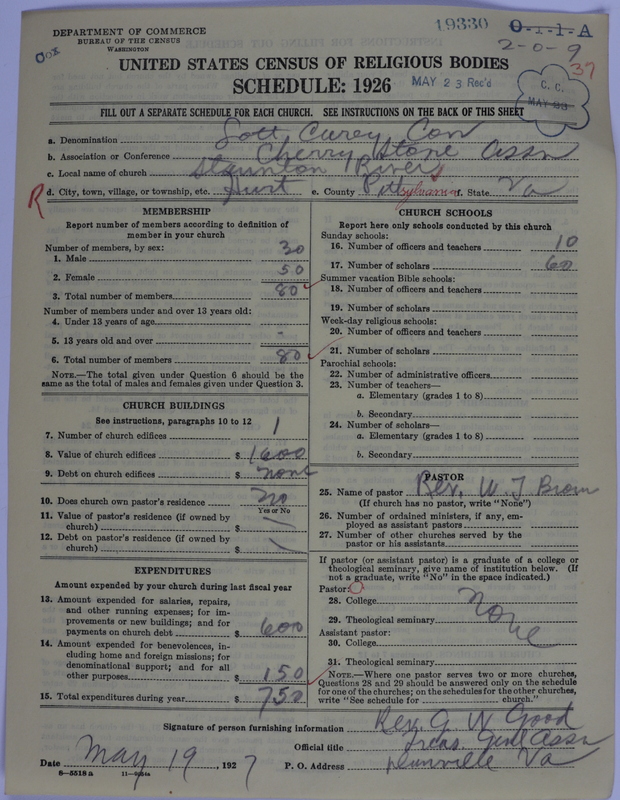 19330 O-1-1-A
DEPARTMENT OF COMMERCE
BUREAU OF THE CENSUS
WASHINGTON
Cox
2-0-9
37
UNITED STATES CENSUS OF RELIGIOUS BODIES
SCHEDULE: 1926
MAY 23 Rec'd
C. C.
FILL OUT A SEPARATE SCHEDULE FOR EACH CHURCH. SEE INSTRUCTIONS ON THE BACK OF THIS SHEET
a. Denomination Lott Carey Con
b. Association or Conference Cherry Stone Assn
c. Local name of church Staunton River
R d. City, town, village, or township, etc. Hurt e. County Pittsylvania f. State Va
MEMBERSHIP
Report number of members according to definition of member in your church
Number of members, by sex:
1. Male 30
2. Female 50
3. Total number of members 80
Number of members under and over 13 years old:
4. Under 13 years of age
5. 13 years old and over -
6. Total number of members 80
NOTE.—The total given under Question 6 should be the
same as the total of males and females given under Question 3.
CHURCH BUILDINGS
See instructions, paragraphs 10 to 12
7. Number of church edifices 1
8. Value of church edifices $ 1600
9. Debt on church edifices $ none
10. Does church own pastor's residence no
Yes or No
11. Value of pastor's residence (if owned by
church) $
12. Debt on pastor's residence (if owned by
church) $
EXPENDITURES
Amount expended by your church during last fiscal year
13. Amount expended for salaries, repairs,
and other running expenses; for im-
provements or new buildings; and for
payments on church debt $ 600
14. Amount expended for benevolences, in-
cluding home and foreign missions; for
denominational support; and for all
other purposes $ 150
15. Total expenditures during year $ 750
CHURCH SCHOOLS
Report here only schools conducted by this church
Sunday schools:
16. Number of officers and teachers 10
17. Number of scholars 60
Summer vacation Bible schools:
18. Number of officers and teachers
19. Number of scholars
Week-day religious schools:
20. Number of officers and teachers
21. Number of scholars
Parochial schools:
22. Number of administrative officers
23. Number of teachers—
a. Elementary (grades 1 to 8)
b. Secondary
24. Number of scholars—
a. Elementary (grades 1 to 8)
b. Secondary
PASTOR
25. Name of pastor Rev. W. J Brown
(If church has no pastor, write "None")
26. Number of ordained ministers, if any, em-
ployed as assistant pastors
27. Number of other churches served by the
pastor or his assistants
If pastor (or assistant pastor) is a graduate of a college or
theological seminary, give name of institution below. (If
not a graduate, write "No" in the space indicated.)
Pastor:
28. College None
29. Theological seminary
Assistant pastor:
30. College
31. Theological seminary
NOTE.—Where one pastor serves two or more churches,
Questions 28 and 29 should be answered only on the schedule
for one of the churches; on the schedules for the other churches,
write "See schedule for church."
Signature of person furnishing information Rev. G. W Good
Official title Treas. Genl Assn
Date May 19, 1927 P. O. Address Va
8—5518 a